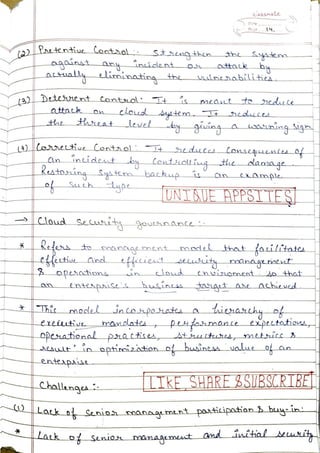 classmate
14.
(2) Pretentive Control : Strengthen the system
against any incident or attack by
actually eliminating the vulnerabilities.
(3) Deterrent Control : It is meant to reduce
attack on cloud system. It reduces
the threat level by giving a warning sign
(4) Corrective Control : It reduces Consequences of
an incident by Controlling the damage
Restoring System backup is an example
of such type
UNIQUE APPSITES
→ Cloud Security governance :-
* Refers to management model that facilitates
effective and efficient security management
& operations in cloud environment so that
an enterprise's business target are achieved
* This model incorporates a hierarchy of
executive mandates, performance expectations,
operational practices, structures, metrics &
result in optimization of business value of an
enterprise
LIKE, SHARE & SUBSCRIBE
Challenges :-
(1) Lack of Senior management participation & buy-in:
* Lack of senior management and initial security